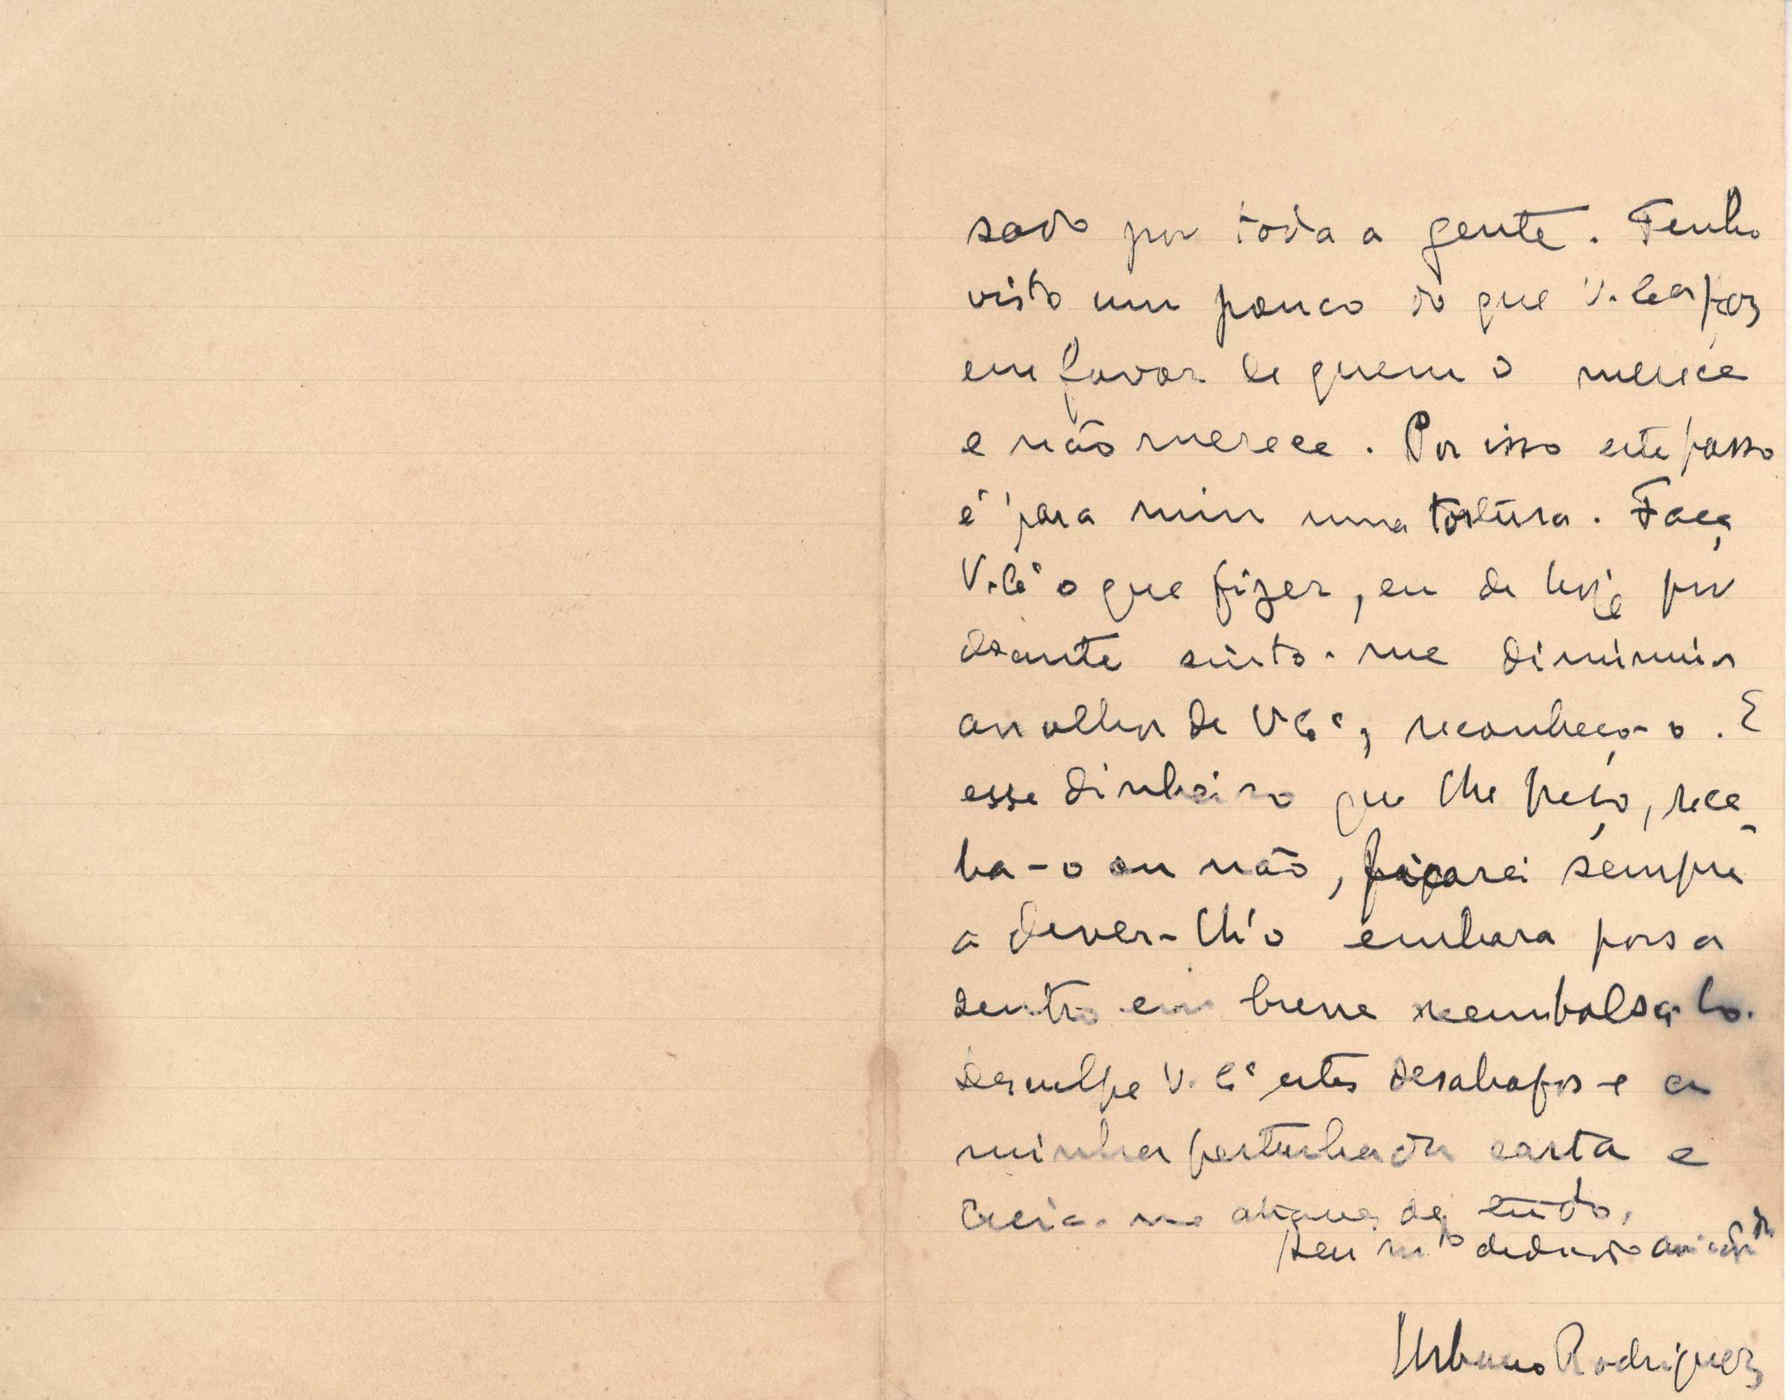 sado por toda a gente. Tenho
visto um pouco do que V. Exª faz
em favor de quem o merece
e não merece. Por isso este passo
é para mim uma tortura. Faça
V. Exª o que fizer, eu de hoje por
deante sinto-me diminuir
aos olhos de V. Exª, reconheço-o. E
esse dinheiro que lhe peço, rece-
ba-o ou não, ficarei sempre
a dever-lh'o embora possa
dentro em breve reembolsa-lo.
Desculpe V. Exª estes desabafos e a
minha perturbada carta e
creia-me atravez de tudo,
seu mto dedicado
Urbano Rodrigues